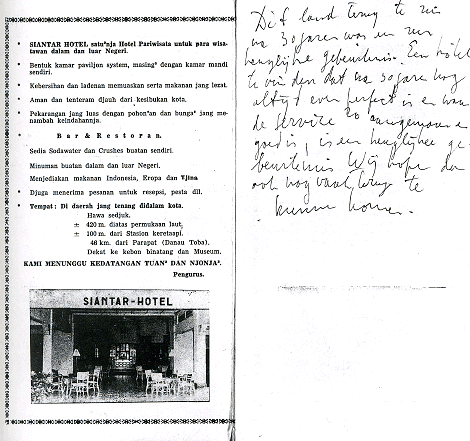 SIANTAR HOTEL satu²nja Hotel Pariwisata untuk para wisatawan dalam dan luar Negeri.
Bentuk kamar paviljon system, masing² dengan kamar mandi
sendiri.
Kebersihan dan ladenan memuaskan serta makanan jang lezat.
Aman dan tenteram djauh dari kesibukan kota.
Pekarangan jang luas dengan pohon²an dan bunga² jang menambah keindahannja.
Bar & Restoran.
Sedia Sodawater dan Crushes buatan sendiri.
Minuman buatan dalam dan luar Negeri.
Menjediakan makanan Indonesia, Eropa dan Tjina.
Djuga menerima pesanan untuk resepsi, pesta dll.
Tempat: Di daerah jang tenang didalam kota.
Hawa sedjuk.
± 420 m. diatas permukaan laut.
± 100 m. dari Stasion keretaapi.
46 km. dari Parapat (Danau Toba).
Dekat ke kebon binatang dan Museum.
KAMI MENUNGGU KEDATANGAN TUAN² DAN NJONJA².
Pengurus.
SIANTAR-HOTEL
Dit land terug te zien
na 30 jaren was en
heuglijke gebeurtenis. Een hôtel
te vinden dat na 30 jaren nog
altijd even perfect is en waar
de service zo aangenaam en
goed is, is een heuglijke gebeurtenis. Wij hopen dan
ook nog vaak terug te
kunnen komen.